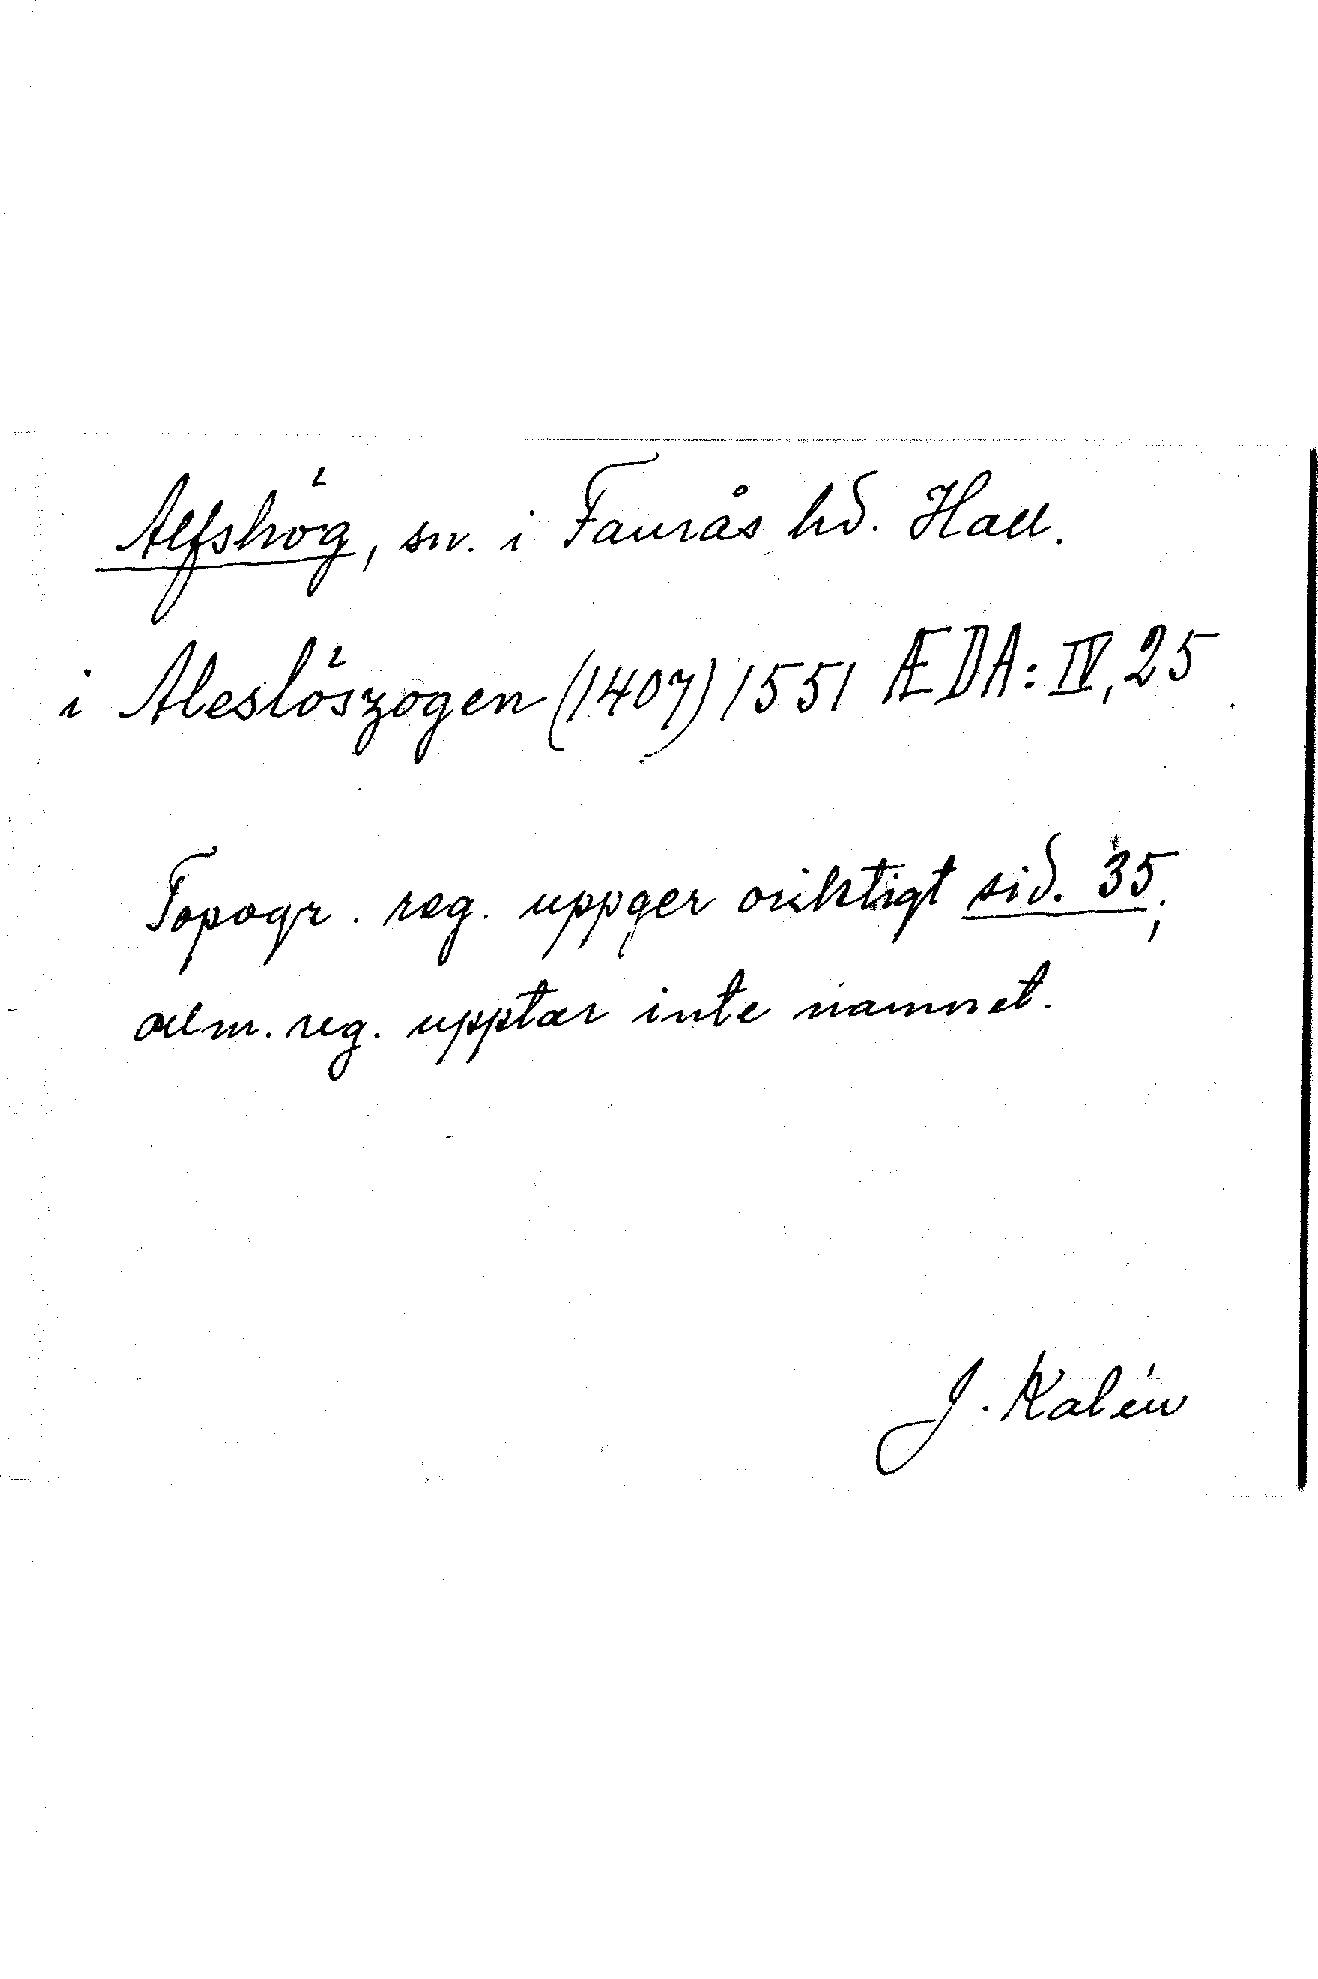 Alfshög, sn. i Faurås hd. Hall.
i Aleslöszogen (1407) 1551 ÆDA: IV, 25
Topogr. reg. uppger oriktigt sid. 35;
allm. reg. upptar inte namnet.
J. Kalén